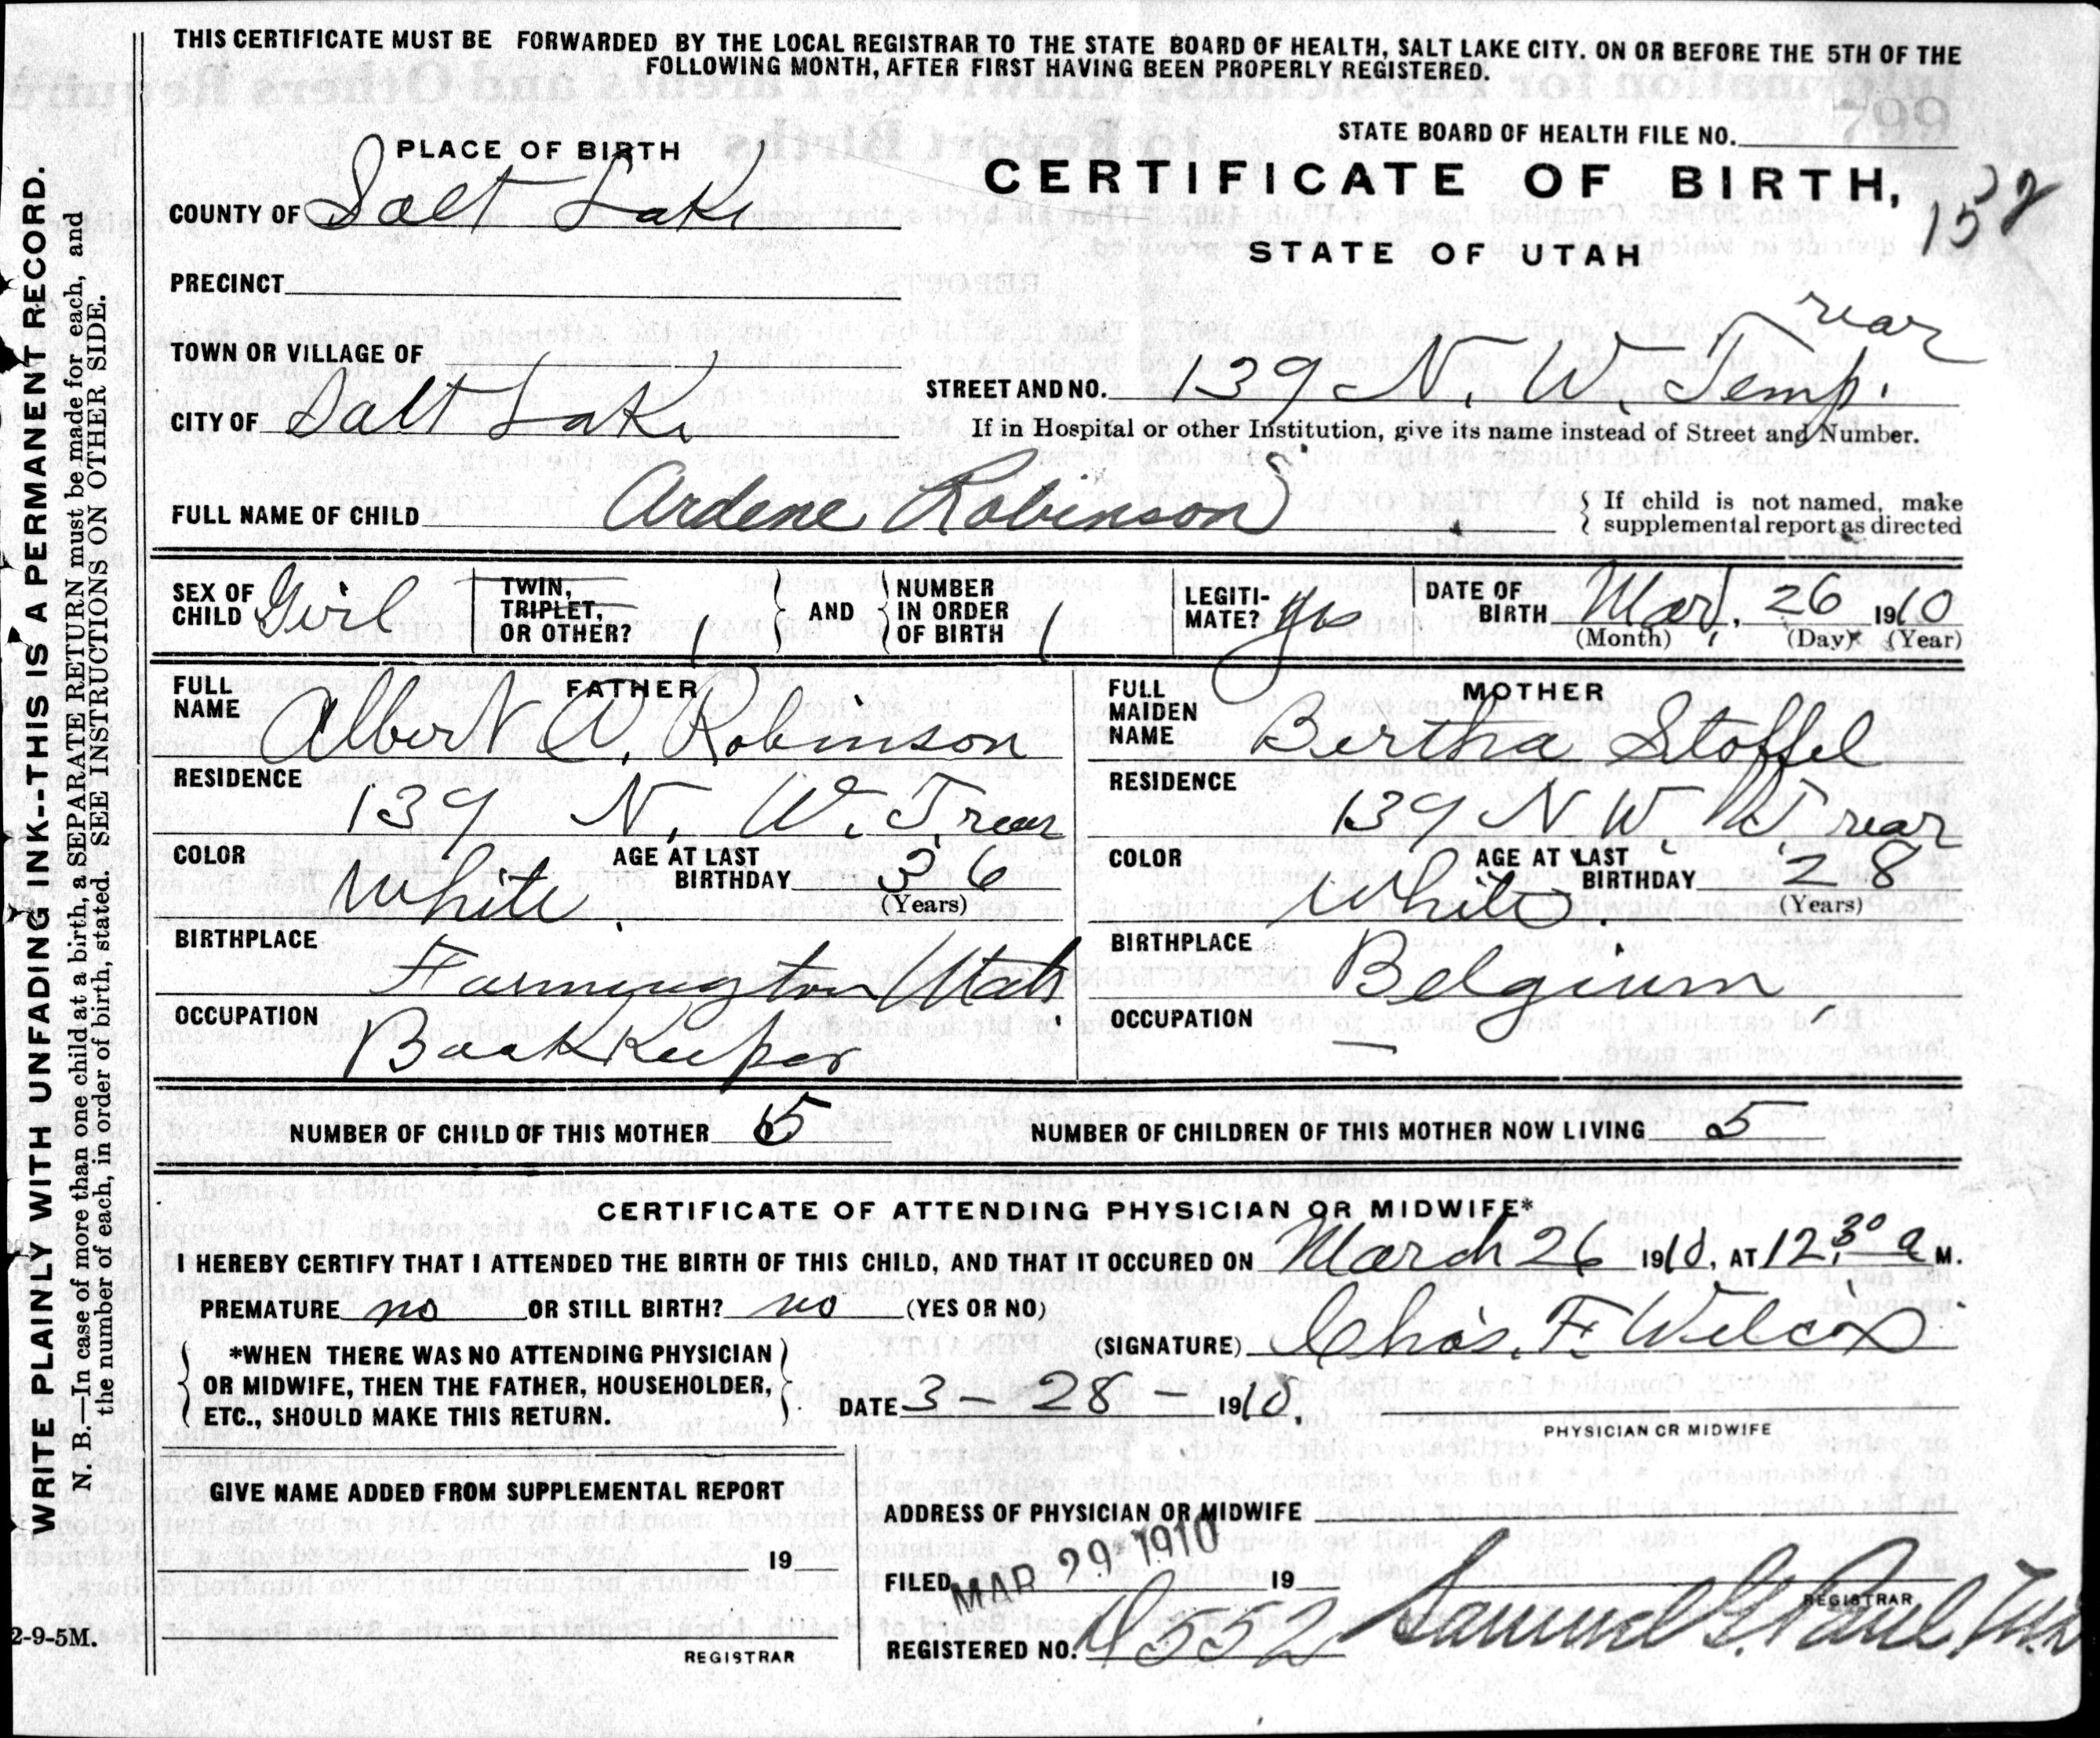 THIS CERTIFICATE MUST BE FORWARDED BY THE LOCAL REGISTRAR TO THE STATE BOARD OF HEALTH, SALT LAKE CITY. ON OR BEFORE THE 5TH OF THE
FOLLOWING MONTH, AFTER FIRST HAVING BEEN PROPERLY REGISTERED.
STATE BOARD OF HEALTH FILE NO.
PLACE OF BIRTH
CERTIFICATE OF BIRTH,
COUNTY OF Salt Lake
STATE OF UTAH
PRECINCT
TOWN OR VILLAGE OF
rear
STREET AND NO. 139 N. W. Temp.
CITY OF Salt Lake
If in Hospital or other Institution, give its name instead of Street and Number.
FULL NAME OF CHILD Ardene Robinson
If child is not named, make
supplemental report as directed
SEX OF CHILD Girl
TWIN, TRIPLET, OR OTHER? 1
AND
NUMBER IN ORDER OF BIRTH 1
LEGITI-MATE? yes
DATE OF BIRTH Mar. 26 1910
(Month) (Day) (Year)
FATHER
FULL NAME Albert W. Robinson
RESIDENCE
139 N. W. T. rear
COLOR White
AGE AT LAST BIRTHDAY 36
(Years)
BIRTHPLACE
Farmington Utah
OCCUPATION
Bookkeeper
MOTHER
FULL MAIDEN NAME Bertha Stoffel
RESIDENCE
139 N W. T rear
COLOR White
AGE AT LAST BIRTHDAY 28
(Years)
BIRTHPLACE
Belgium
OCCUPATION
—
NUMBER OF CHILD OF THIS MOTHER 5
NUMBER OF CHILDREN OF THIS MOTHER NOW LIVING 5
CERTIFICATE OF ATTENDING PHYSICIAN OR MIDWIFE*
I HEREBY CERTIFY THAT I ATTENDED THE BIRTH OF THIS CHILD, AND THAT IT OCCURED ON March 26 1910, AT 12 30 a M.
PREMATURE no OR STILL BIRTH? no (YES OR NO)
(SIGNATURE) Chas. F. Wilcox
*WHEN THERE WAS NO ATTENDING PHYSICIAN
OR MIDWIFE, THEN THE FATHER, HOUSEHOLDER,
ETC., SHOULD MAKE THIS RETURN.
DATE 3 – 28 – 1910.
PHYSICIAN OR MIDWIFE
GIVE NAME ADDED FROM SUPPLEMENTAL REPORT
19
REGISTRAR
ADDRESS OF PHYSICIAN OR MIDWIFE
FILED MAR 29 1910 19
REGISTRAR
REGISTERED NO. 552 Samuel G. Paul
2-9-5M.
WRITE PLAINLY WITH UNFADING INK--THIS IS A PERMANENT RECORD.
N. B.—In case of more than one child at a birth, a SEPARATE RETURN must be made for each, and
the number of each, in order of birth, stated. SEE INSTRUCTIONS ON OTHER SIDE.